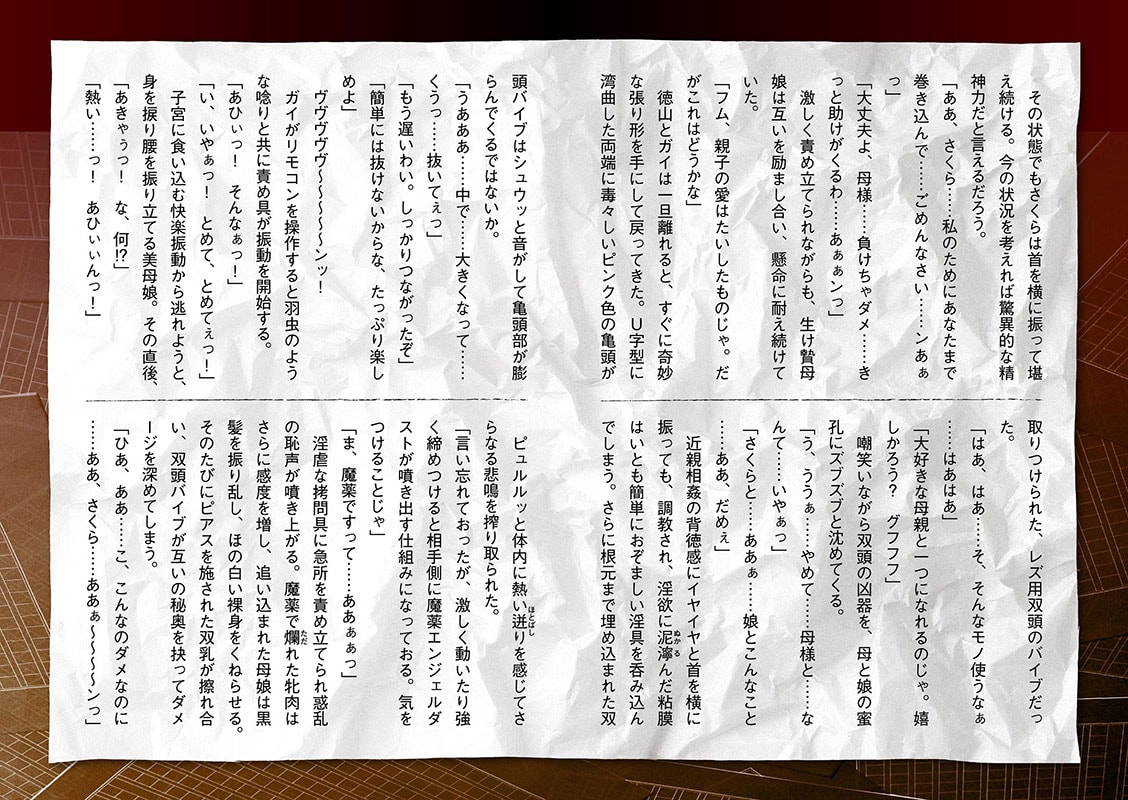 その状態でもさくらは首を横に振って堪
え続ける。今の状況を考えれば驚異的な精
神力だと言えるだろう。
「ああ、さくら……私のためにあなたまで
巻き込んで……ごめんなさい……ンあぁ
っ」
「大丈夫よ、母様……負けちゃダメ……き
っと助けがくるわ……あぁぁンっ」
激しく責め立てられながらも、生け贄母
娘は互いを励まし合い、懸命に耐え続けて
いた。
「フム、親子の愛はたいしたものじゃ。だ
がこれはどうかな」
徳山とガイは一旦離れると、すぐに奇妙
な張り形を手にして戻ってきた。U字型に
湾曲した両端に毒々しいピンク色の亀頭が
取りつけられた、レズ用双頭のバイブだっ
た。
「はあ、はあ……そ、そんなモノ使うなぁ
……はあはあ」
「大好きな母親と一つになれるのじゃ。嬉
しかろう？　グフフフ」
嘲笑いながら双頭の凶器を、母と娘の蜜
孔にズブズブと沈めてくる。
「う、ううぁ……やめて……母様と……な
んて……いやぁっ」
「さくらと……ああぁ……娘とこんなこと
……ああ、だめぇ」
近親相姦の背徳感にイヤイヤと首を横に
振っても、調教され、淫欲に泥濘んだ粘膜
はいとも簡単におぞましい淫具を呑み込ん
でしまう。さらに根元まで埋め込まれた双
頭バイブはシュウッと音がして亀頭部が膨
らんでくるではないか。
「うあああ……中で……大きくなって……
くうっ……抜いてぇっ」
「もう遅いわい。しっかりつながったぞ」
「簡単には抜けないからな、たっぷり楽し
めよ」
ヴヴヴヴヴ～～～～～ンッ！
ガイがリモコンを操作すると羽虫のよう
な唸りと共に責め具が振動を開始する。
「あひぃっ！　そんなぁっ！」
「い、いやぁっ！　とめて、とめてぇっ！」
子宮に食い込む快楽振動から逃れようと、
身を捩り腰を振り立てる美母娘。その直後、
「あきゃぅっ！　な、何!?」
「熱い……っ！　あひぃぃんっ！」
ピュルルッと体内に熱い迸りを感じてさ
らなる悲鳴を搾り取られた。
「言い忘れておったが、激しく動いたり強
く締めつけると相手側に魔薬エンジェルダ
ストが噴き出す仕組みになっておる。気を
つけることじゃ」
「ま、魔薬ですって……ああぁぁっ」
淫虐な拷問具に急所を責め立てられ惑乱
の恥声が噴き上がる。魔薬で爛れた牝肉は
さらに感度を増し、追い込まれた母娘は黒
髪を振り乱し、ほの白い裸身をくねらせる。
そのたびにピアスを施された双乳が擦れ合
い、双頭バイブが互いの秘奥を抉ってダメ
ージを深めてしまう。
「ひあ、ああ……こ、こんなのダメなのに
……ああ、さくら……ああぁ～～～～ンっ」